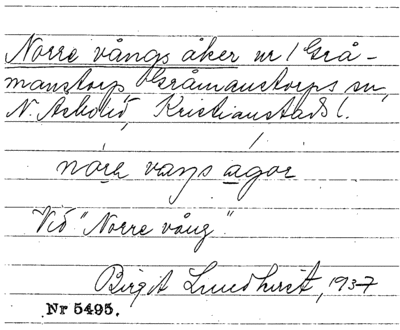 Norre vångs åker nr 1 Grå-
manstorp Gråmanstorps sn,
N. Åsbo hd, Kristianstads l.
nóra vaŋs ágor
Vid "Norre vång".
Birgit Lundqvist, 1937
Nr 5495.